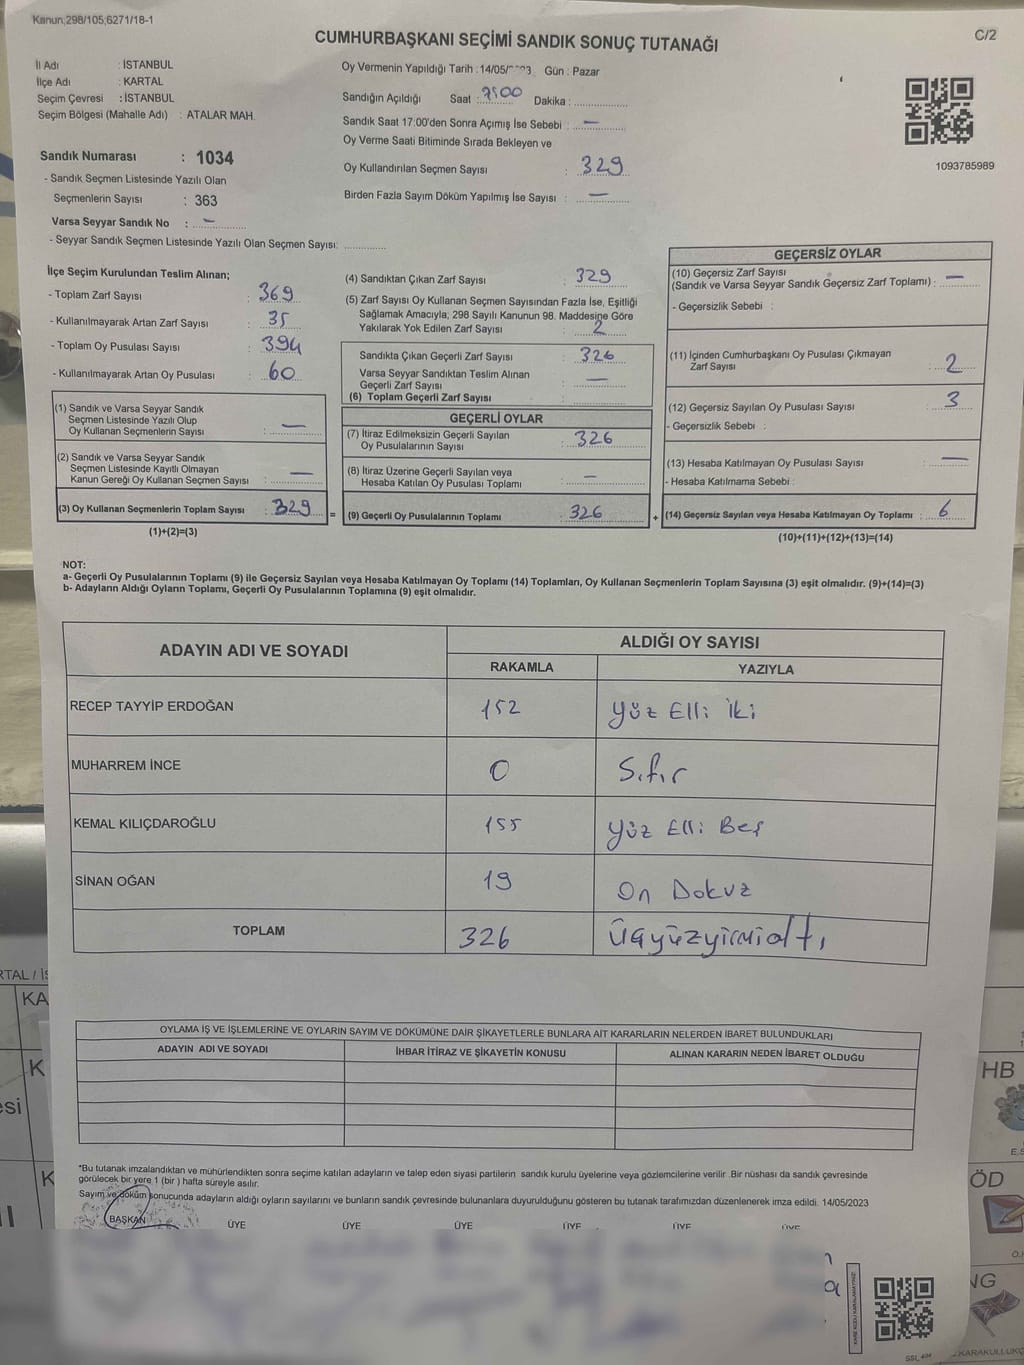 Kanun;298/105;6271/18-1
CUMHURBAŞKANI SEÇİMİ SANDIK SONUÇ TUTANAĞI
C/2
İl Adı : İSTANBUL
İlçe Adı : KARTAL
Seçim Çevresi : İSTANBUL
Seçim Bölgesi (Mahalle Adı) : ATALAR MAH.
Sandık Numarası : 1034
- Sandık Seçmen Listesinde Yazılı Olan
Seçmenlerin Sayısı : 363
Varsa Seyyar Sandık No : —
- Seyyar Sandık Seçmen Listesinde Yazılı Olan Seçmen Sayısı: ............
Oy Vermenin Yapıldığı Tarih : 14/05/ 23 Gün : Pazar
Sandığın Açıldığı Saat : Dakika : ............
Sandık Saat 17:00'den Sonra Açımış İse Sebebi : —
Oy Verme Saati Bitiminde Sırada Bekleyen ve
Oy Kullandırılan Seçmen Sayısı : 329
Birden Fazla Sayım Döküm Yapılmış İse Sayısı : —
1093785989
İlçe Seçim Kurulundan Teslim Alınan;
- Toplam Zarf Sayısı : 369
- Kullanılmayarak Artan Zarf Sayısı : 35
- Toplam Oy Pusulası Sayısı : 394
- Kullanılmayarak Artan Oy Pusulası : 60
(1) Sandık ve Varsa Seyyar Sandık
Seçmen Listesinde Yazılı Olup
Oy Kullanan Seçmenlerin Sayısı : —
(2) Sandık ve Varsa Seyyar Sandık
Seçmen Listesinde Kayıtlı Olmayan
Kanun Gereği Oy Kullanan Seçmen Sayısı : —
(3) Oy Kullanan Seçmenlerin Toplam Sayısı : 329 =
(1)+(2)=(3)
(4) Sandıktan Çıkan Zarf Sayısı : 329
(5) Zarf Sayısı Oy Kullanan Seçmen Sayısından Fazla İse, Eşitliği
Sağlamak Amacıyla; 298 Sayılı Kanunun 98. Maddesine Göre
Yakılarak Yok Edilen Zarf Sayısı : 2
Sandıkta Çıkan Geçerli Zarf Sayısı : 326
Varsa Seyyar Sandıktan Teslim Alınan
Geçerli Zarf Sayısı : —
(6) Toplam Geçerli Zarf Sayısı : ............
GEÇERLİ OYLAR
(7) İtiraz Edilmeksizin Geçerli Sayılan
Oy Pusulalarının Sayısı : 326
(8) İtiraz Üzerine Geçerli Sayılan veya
Hesaba Katılan Oy Pusulası Toplamı : —
(9) Geçerli Oy Pusulalarının Toplamı : 326 +
GEÇERSİZ OYLAR
(10) Geçersiz Zarf Sayısı
(Sandık ve Varsa Seyyar Sandık Geçersiz Zarf Toplamı) : —
- Geçersizlik Sebebi :
(11) İçinden Cumhurbaşkanı Oy Pusulası Çıkmayan
Zarf Sayısı : 2
(12) Geçersiz Sayılan Oy Pusulası Sayısı : 3
- Geçersizlik Sebebi :
(13) Hesaba Katılmayan Oy Pusulası Sayısı : —
- Hesaba Katılmama Sebebi :
(14) Geçersiz Sayılan veya Hesaba Katılmayan Oy Toplamı : 6
(10)+(11)+(12)+(13)=(14)
NOT:
a- Geçerli Oy Pusulalarının Toplamı (9) ile Geçersiz Sayılan veya Hesaba Katılmayan Oy Toplamı (14) Toplamları, Oy Kullanan Seçmenlerin Toplam Sayısına (3) eşit olmalıdır. (9)+(14)=(3)
b- Adayların Aldığı Oyların Toplamı, Geçerli Oy Pusulalarının Toplamına (9) eşit olmalıdır.
ADAYIN ADI VE SOYADI
ALDIĞI OY SAYISI
RAKAMLA YAZIYLA
RECEP TAYYİP ERDOĞAN 152 Yüz Elli İki
MUHARREM İNCE 0 Sıfır
KEMAL KILIÇDAROĞLU 155 Yüz Elli Beş
SİNAN OĞAN 19 On Dokuz
TOPLAM 326 Üçyüzyirmialtı
OYLAMA İŞ VE İŞLEMLERİNE VE OYLARIN SAYIM VE DÖKÜMÜNE DAİR ŞİKAYETLERLE BUNLARA AİT KARARLARIN NELERDEN İBARET BULUNDUKLARI
ADAYIN ADI VE SOYADI İHBAR İTİRAZ VE ŞİKAYETİN KONUSU ALINAN KARARIN NEDEN İBARET OLDUĞU
*Bu tutanak imzalandıktan ve mühürlendikten sonra seçime katılan adayların ve talep eden siyasi partilerin sandık kurulu üyelerine veya gözlemcilerine verilir. Bir nüshası da sandık çevresinde
görülecek bir yere 1 (bir ) hafta süreyle asılır.
Sayım ve döküm sonucunda adayların aldığı oyların sayılarını ve bunların sandık çevresinde bulunanlara duyurulduğunu gösteren bu tutanak tarafımızdan düzenlenerek imza edildi. 14/05/2023
BAŞKAN ÜYE ÜYE ÜYE ÜYE ÜYE ÜYE
RTAL / İS
KA
K
esi
K
HB
ÖD
NG
KARAKULLUKÇ